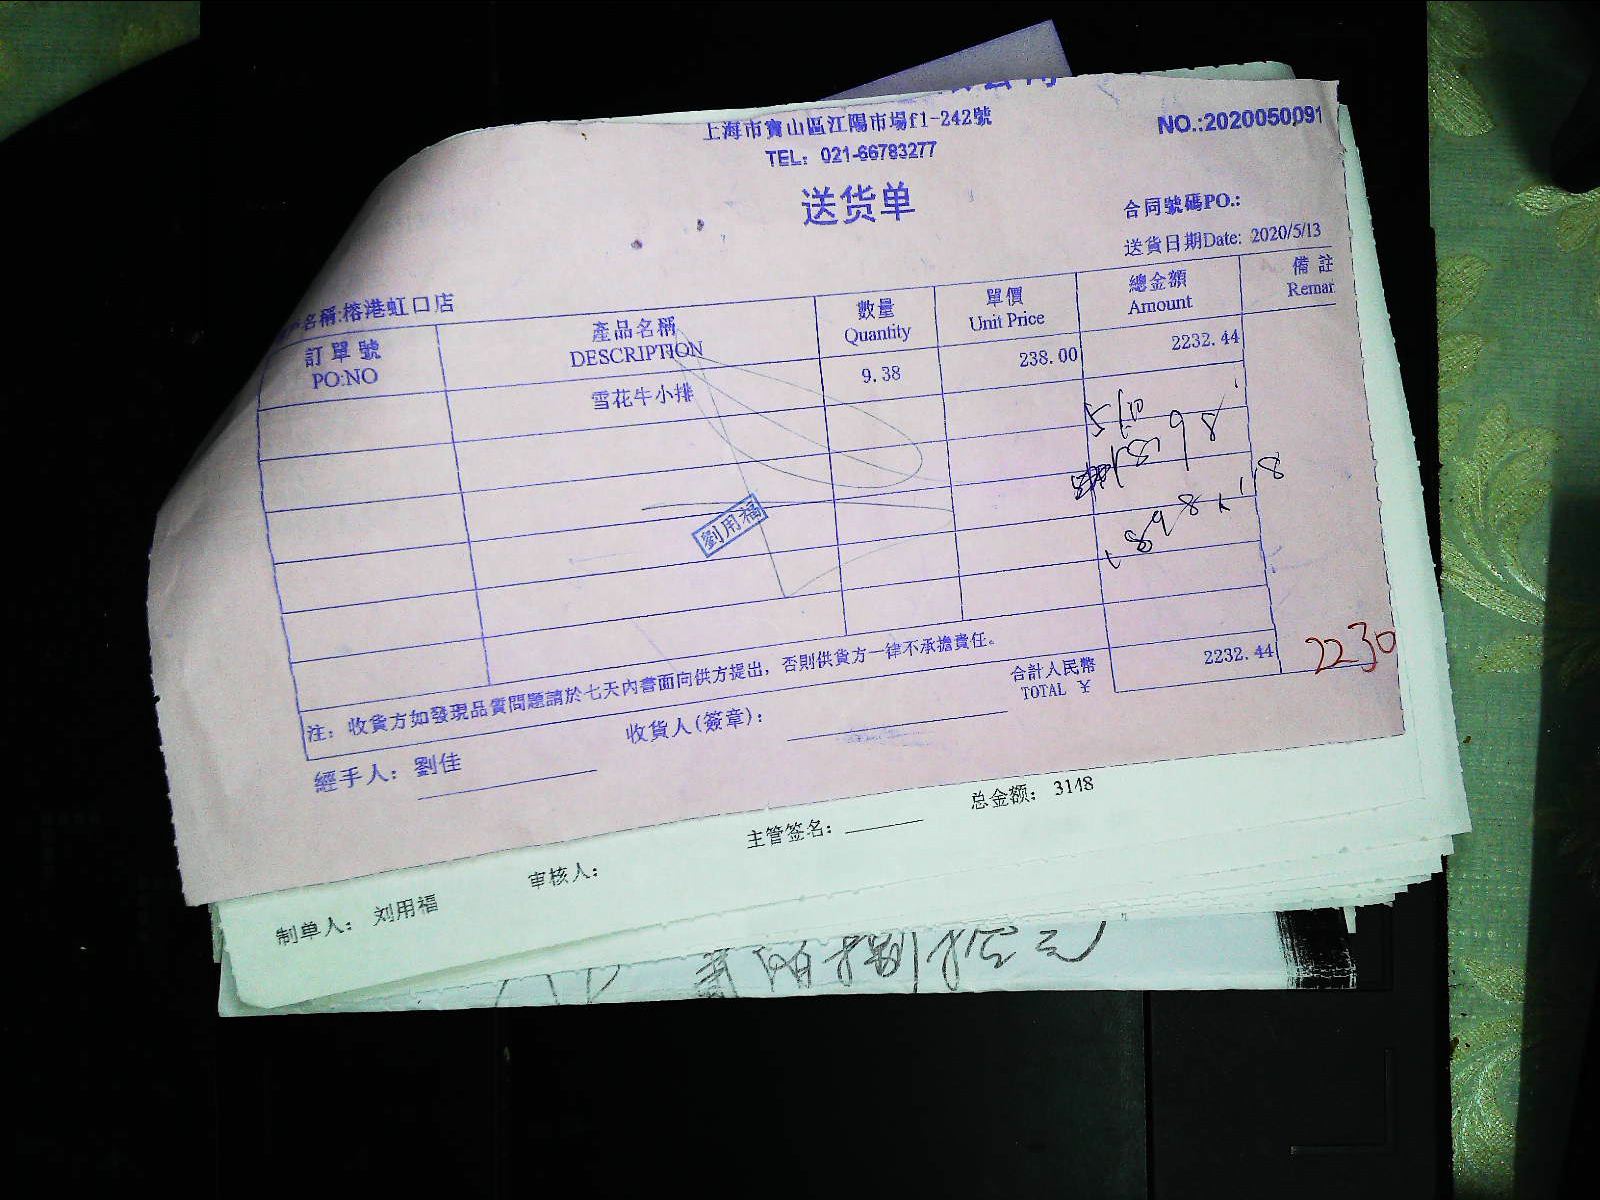 上海市寳山區江陽市場f1-242號
NO.:2020050091
TEL: 021-66783277
送货单
合同號碼PO.:
送貨日期Date: 2020/5/13
名稱:榕港虹口店
訂單號 產品名稱 數量 單價 總金額 備註
PO:NO DESCRIPTION Quantity Unit Price Amount Remar
雪花牛小排 9.38 238.00 2232.44
5/10
898
劉用福
1898
2232.44 2230
注: 收貨方如發現品質問題請於七天內書面向供方提出, 否則供貨方一律不承擔責任。
合計人民幣
TOTAL ¥
經手人: 劉佳
收貨人(簽章):
制单人: 刘用福 审核人: 主管签名: 总金额: 3148